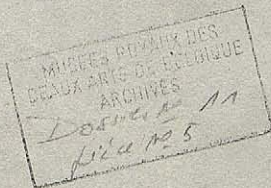 MUSÉES ROYAUX DES
BEAUX ARTS DE BELGIQUE
ARCHIVES
Dossier No 11
pièce No 5